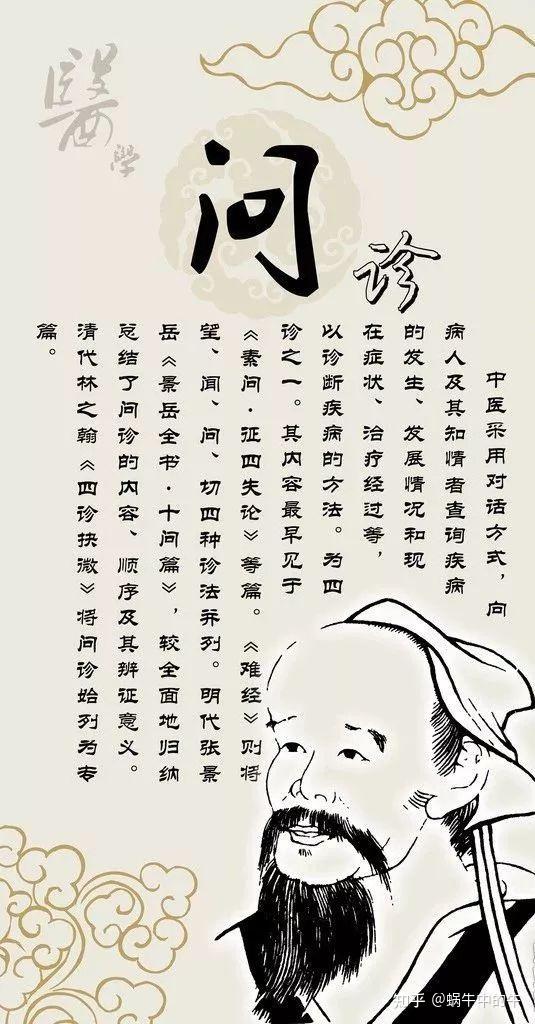 醫
學
问
诊
中医采用对话方式，向
病人及其知情者查询疾病
的发生、发展情况和现
在症状、治疗经过等，
以诊断疾病的方法。为四
诊之一。其内容最早见于
《素问·征四失论》等篇。《难经》则将
望、闻、问、切四种诊法并列。明代张景
岳《景岳全书·十问篇》，较全面地归纳
总结了问诊的内容、顺序及其辨证意义。
清代林之翰《四诊抉微》将问诊始列为专
篇。
知乎 @蜗牛中的牛